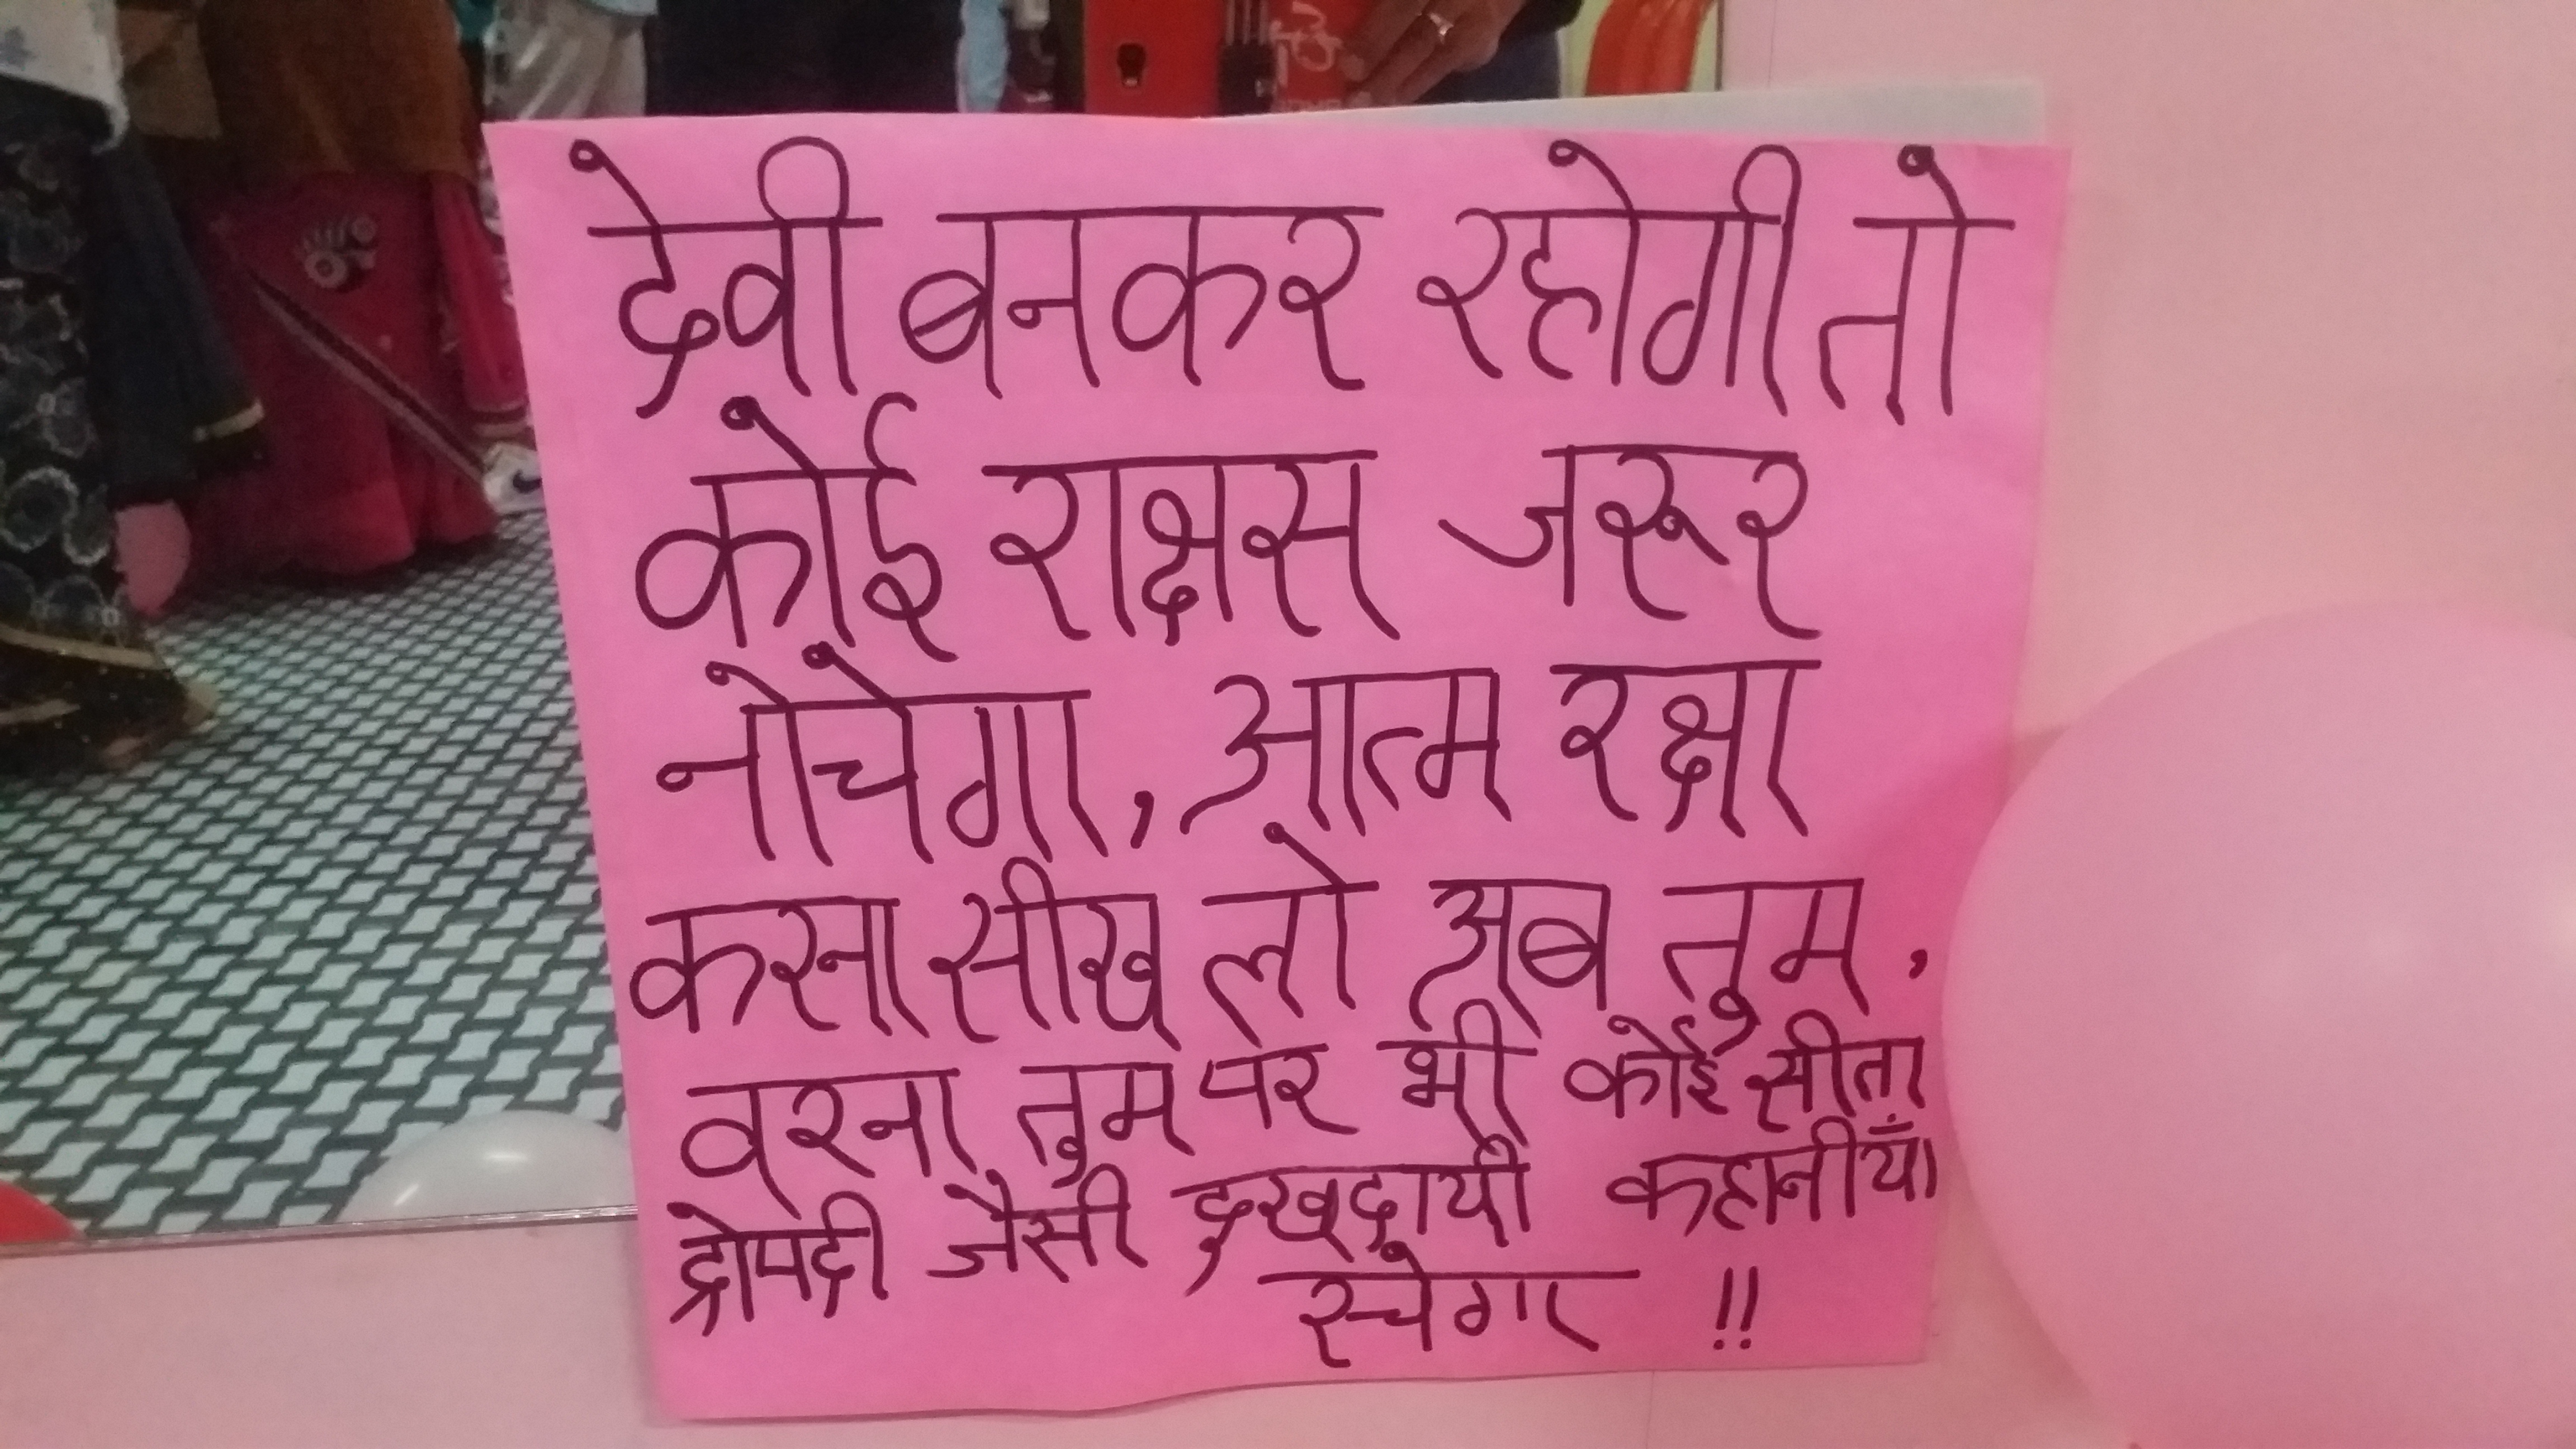 देवी बनकर रहोगी तो
कोई राक्षस जरूर
नोचेगा, आत्म रक्षा
करना सीख लो अब तुम,
वरना तुम पर भी कोई सीता
द्रोपद्री जैसी दुखदायी कहानीयाँ
रचेगा !!